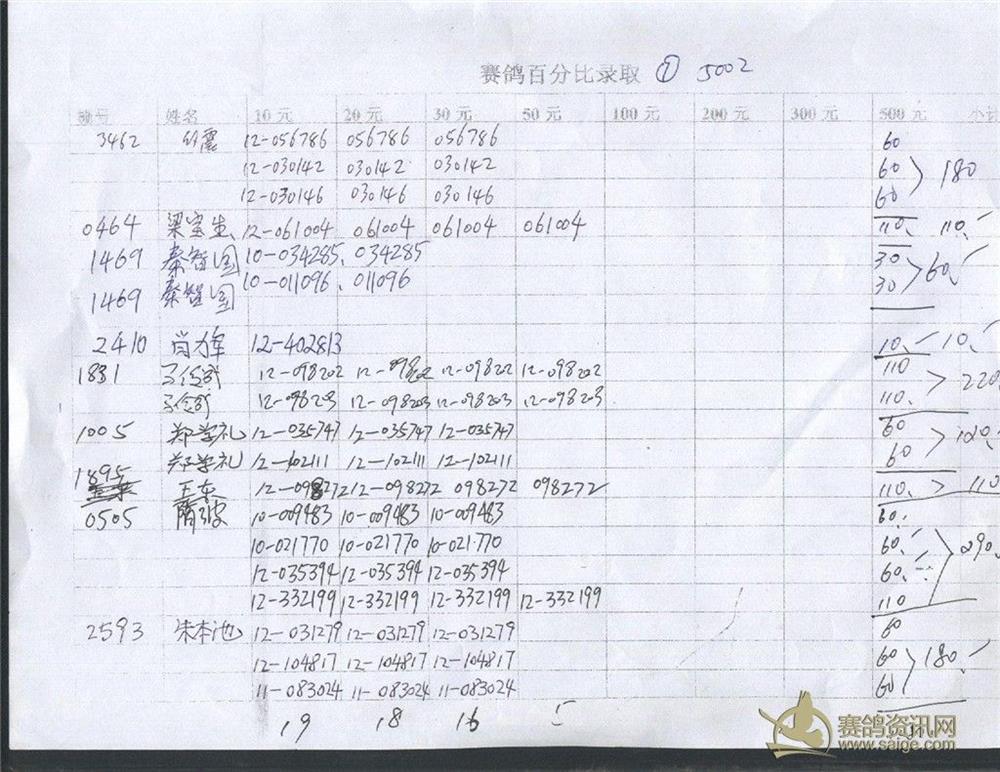 赛鸽百分比录取 ① 5002
姓名 10元 20元 30元 50元 100元 200元 300元 500元
3462 震 12-056786 056786 056786 60
12-030142 030142 030142 60 180
12-030146 030146 030146 60
0464 梁宝生 12-061004 061004 061004 061004 110 110
1469 秦智国 10-034285 034285 30
1469 秦智国 10-011096 011096 30 60
2410 肖力军 12-402813 10 10
1831 12-098202 12-098202 12-098202 12-098202 110
12-098203 12-098203 12-098203 12-098203 110 220
1005 郑学礼 12-035747 12-035747 12-035747 60
郑学礼 12-102111 12-102111 12-102111 60 120
1895 王东 12-098272 12-098272 098272 098272 110 110
0505 隋波 10-009483 10-009483 10-009483 60
10-021770 10-021770 10-021770 60 290
12-035394 12-035394 12-035394 60
12-332199 12-332199 12-332199 12-332199 110
2593 朱本池 12-031279 12-031279 12-031279 60
12-104817 12-104817 12-104817 60 180
11-083024 11-083024 11-083024 60
19 18 16 5
赛鸽资讯网
www.saige.com